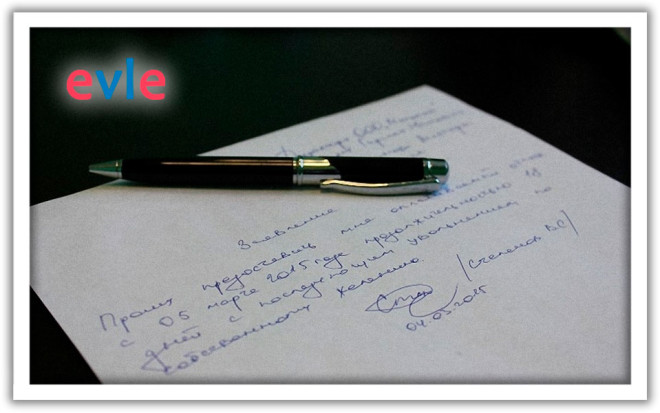 evle
Директору ООО
Заявление
Прошу предоставить мне оплачиваемый отпуск
с 05 марта 2015 года продолжительностью 14
дней с последующим увольнением по
собственному желанию.
/Степанов ВС/
04.03.2015